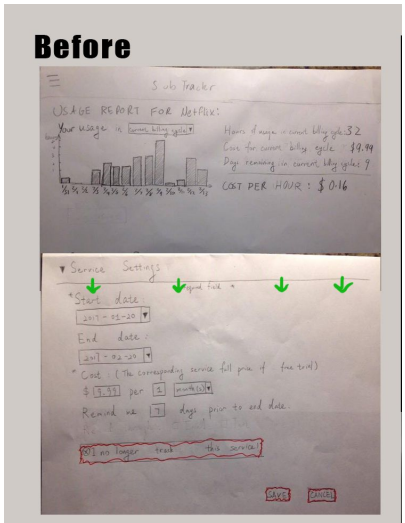 Before
Sub Tracker
USAGE REPORT FOR Netflix:
Your usage in current billing cycle
Hours of usage in current billing cycle: 32
Cost for current billing cycle: $9.99
Days remaining in current billing cycle: 9
COST PER HOUR: $0.16
Service Settings
required field *
*Start date
2017-01-20
End date:
2017-02-20
*Cost: (The corresponding service full price if free trial)
$ 9.99 per 1 month(s)
Remind me 7 days prior to end date.
I no longer track this service!
SAVE CANCEL